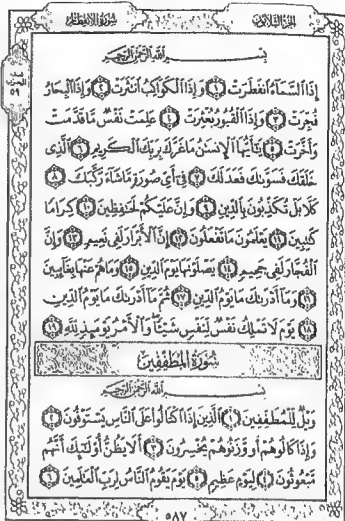 الجزء الثلاثون سورة الانفطار
بسم الله الرحمن الرحيم
إذا السماء انفطرت ١ وإذا الكواكب انتثرت ٢ وإذا البحار
فجرت ٣ وإذا القبور بعثرت ٤ علمت نفس ما قدمت
وأخرت ٥ يأيها الإنسن ما غرك بربك الكريم ٦ الذى
خلقك فسوىك فعدلك ٧ فى أى صورة ما شاء ركبك ٨
كلا بل تكذبون بالدين ٩ وإن عليكم لحفظين ١٠ كراما
كتبين ١١ يعلمون ما تفعلون ١٢ إن الأبرار لفى نعيم ١٣ وإن
الفجار لفى جحيم ١٤ يصلونها يوم الدين ١٥ وما هم عنها بغائبين
١٦ وما أدرىك ما يوم الدين ١٧ ثم ما أدرىك ما يوم الدين
١٨ يوم لا تملك نفس لنفس شيئا والأمر يومئذ لله ١٩
سورة المطففين
بسم الله الرحمن الرحيم
ويل للمطففين ١ الذين إذا اكتالوا على الناس يستوفون ٢
وإذا كالوهم أو وزنوهم يخسرون ٣ ألا يظن أولئك أنهم
مبعوثون ٤ ليوم عظيم ٥ يوم يقوم الناس لرب العلمين ٦
٥٨٧